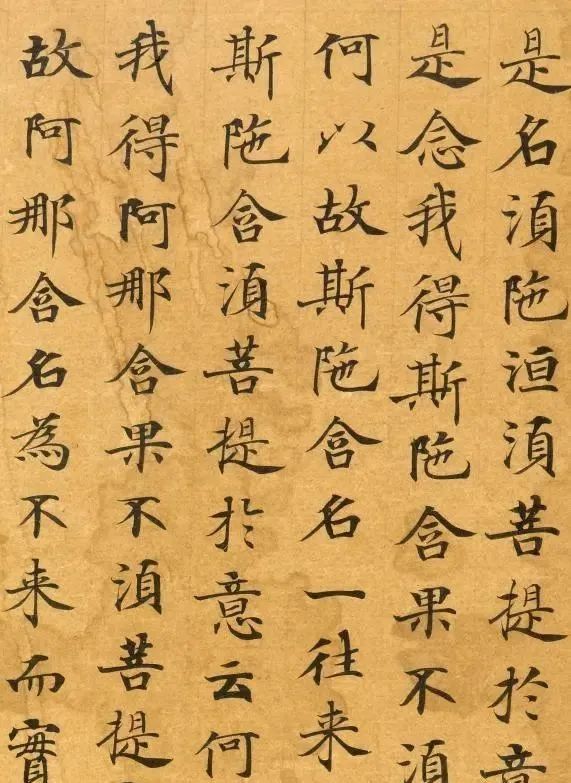 是名湏陁洹湏菩提於意
是念我得斯陁含果不湏
何以故斯陁含名一往来
斯陁含湏菩提於意云何
我得阿那含果不湏菩提
故阿那含名為不来而實